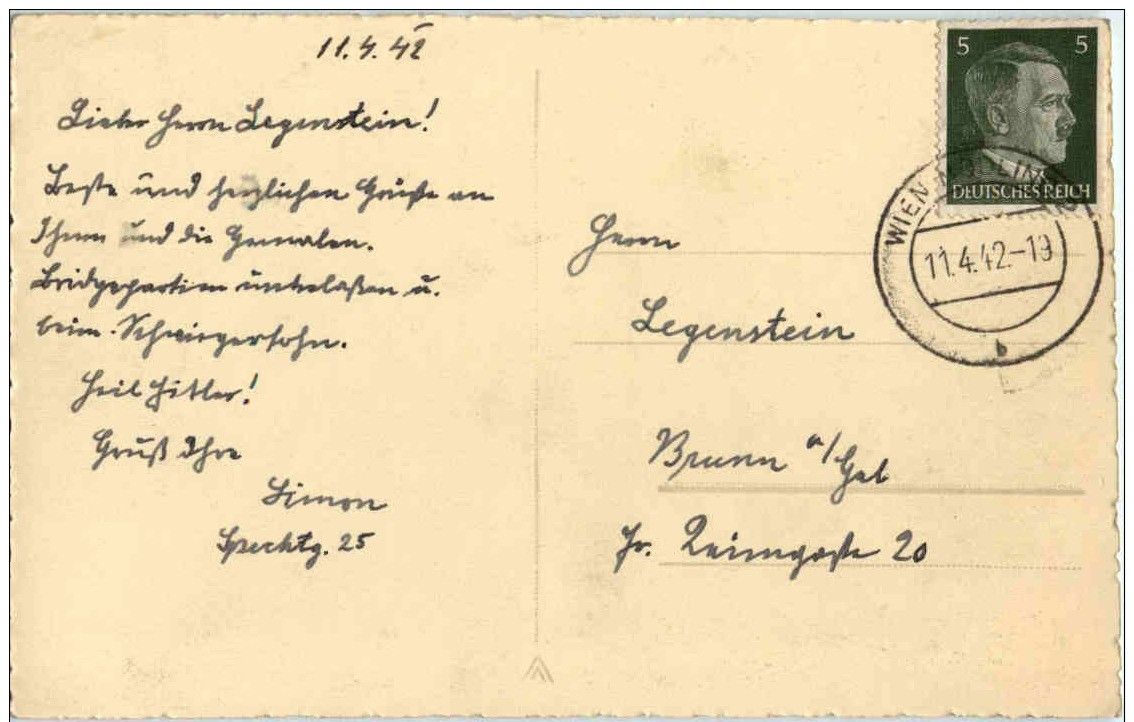 11.4.42
Lieber Herr Legenstein!
Beste und herzlichen Grüße an
Ihnen und die
Bridgepartien u.
beim Schwiegersohn.
Heil Hitler!
Gruß Ihre
Simon
Spechtg. 25
5 5
DEUTSCHES REICH
WIEN
11.4.42-19
b
Herrn
Legenstein
Brunn a/Geb
Fr. 20